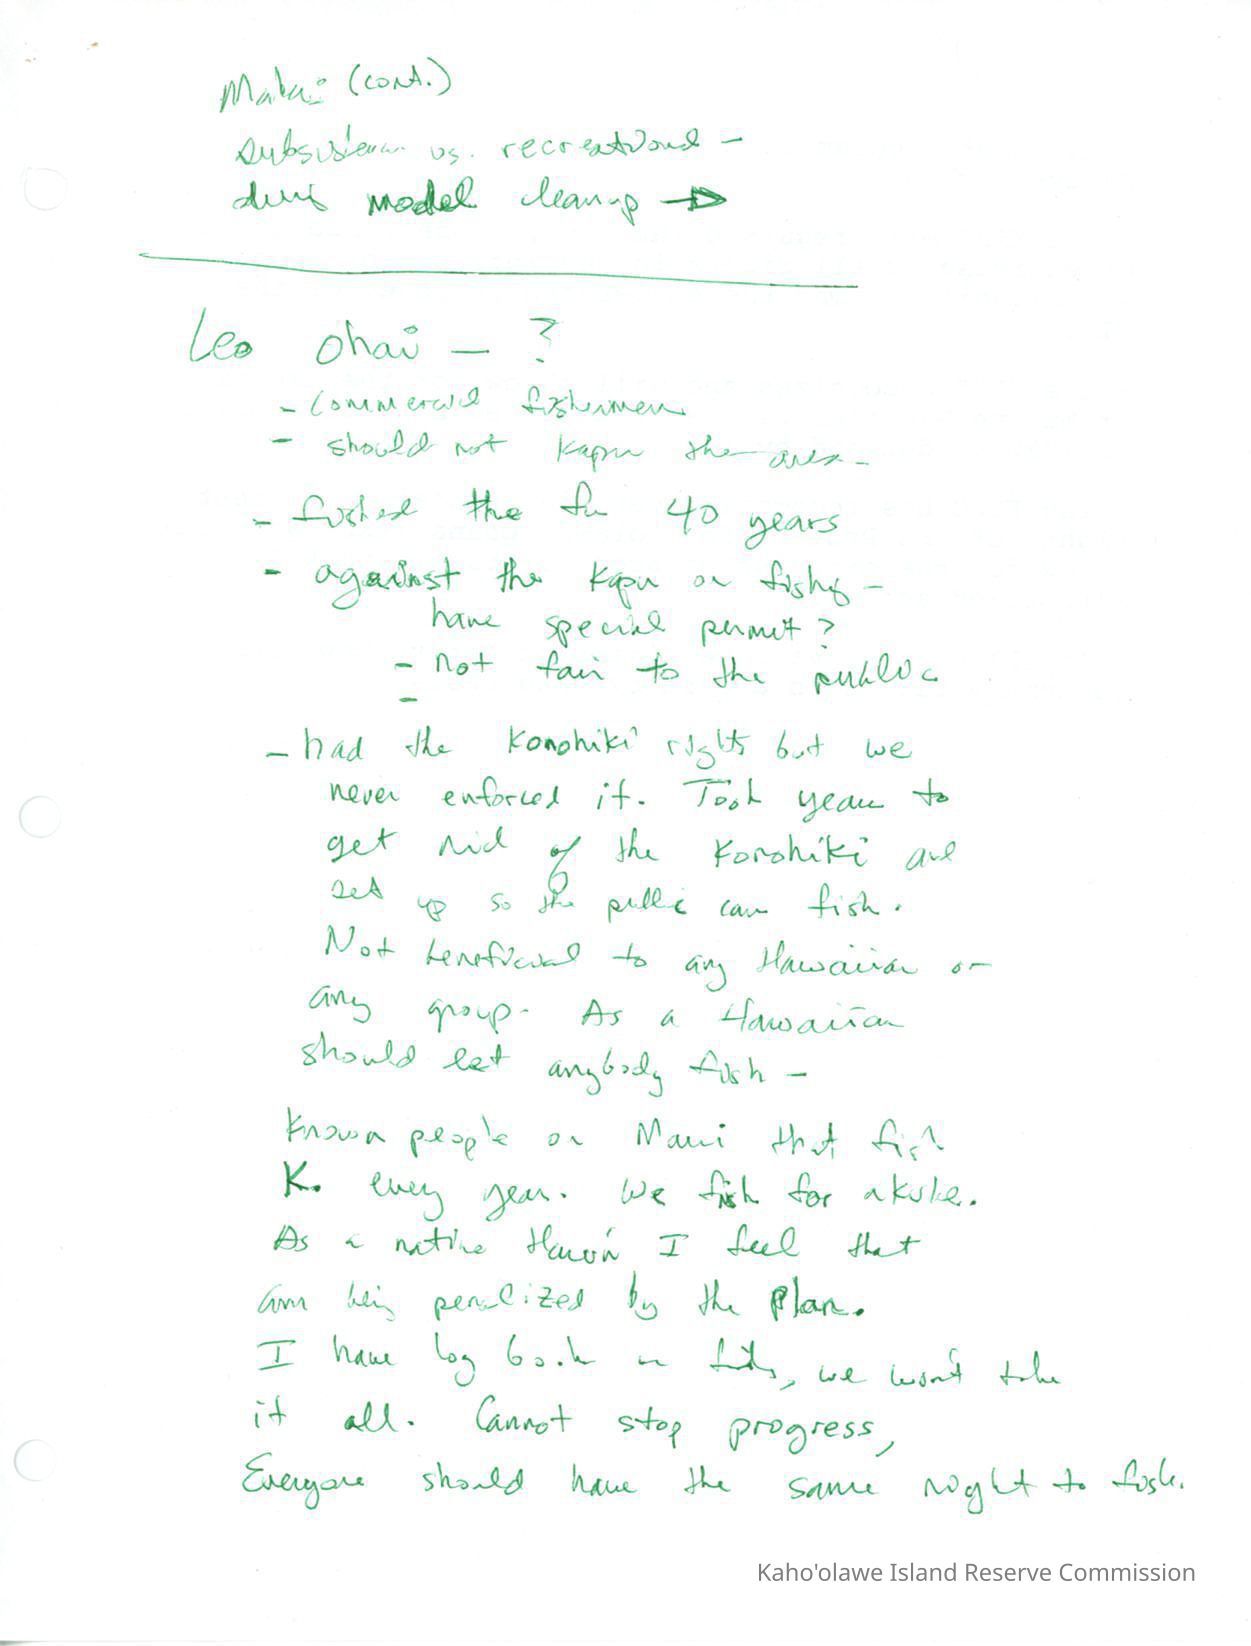 (cont.)
vs. recreational -
model cleanup →
Leo Ohai - ?
- Commercial fishermen
- should not kapu the area -
- fished the for 40 years
- against the Kapu on fishg -
have special permit?
- not fair to the public
-
- had the Konohiki rights but we
never enforced it. Took years to
get rid of the Konohiki and
set up so the public can fish.
Not beneficial to any Hawaiian or
any group. As a Hawaiian
should let anybody fish -
Known people on Maui that fish
K. every year. We fish for akule.
As a native Hawn I feel that
am being penalized by the Plan.
I have log book on , we won't take
it all. Cannot stop progress,
Everyone should have the same right to fish.
Kaho'olawe Island Reserve Commission